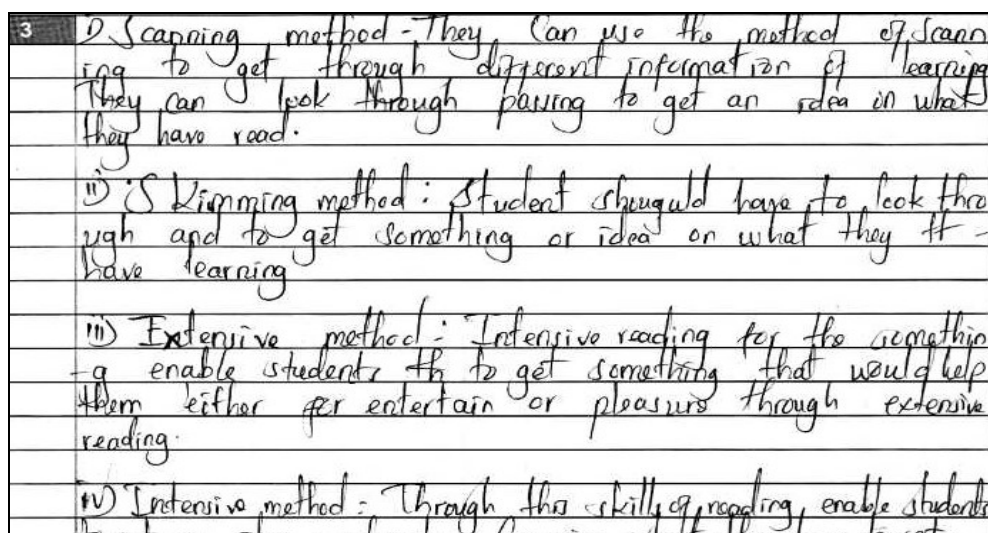 3
i) Scanning method - They can use the method of scann
ing to get through different information of learning
They can look through passing to get an idea on what
they have read.
ii) Skimming method : Student shouguld have to look thro
ugh and to get something or idea on what they tt -
have learning
iii) Extensive method : Intensive reading for the somethin
-g enable students th to get something that would help
them either for entertain or pleasure through extensive
reading.
iv) Intensive method : Through this skill of reading, enable students